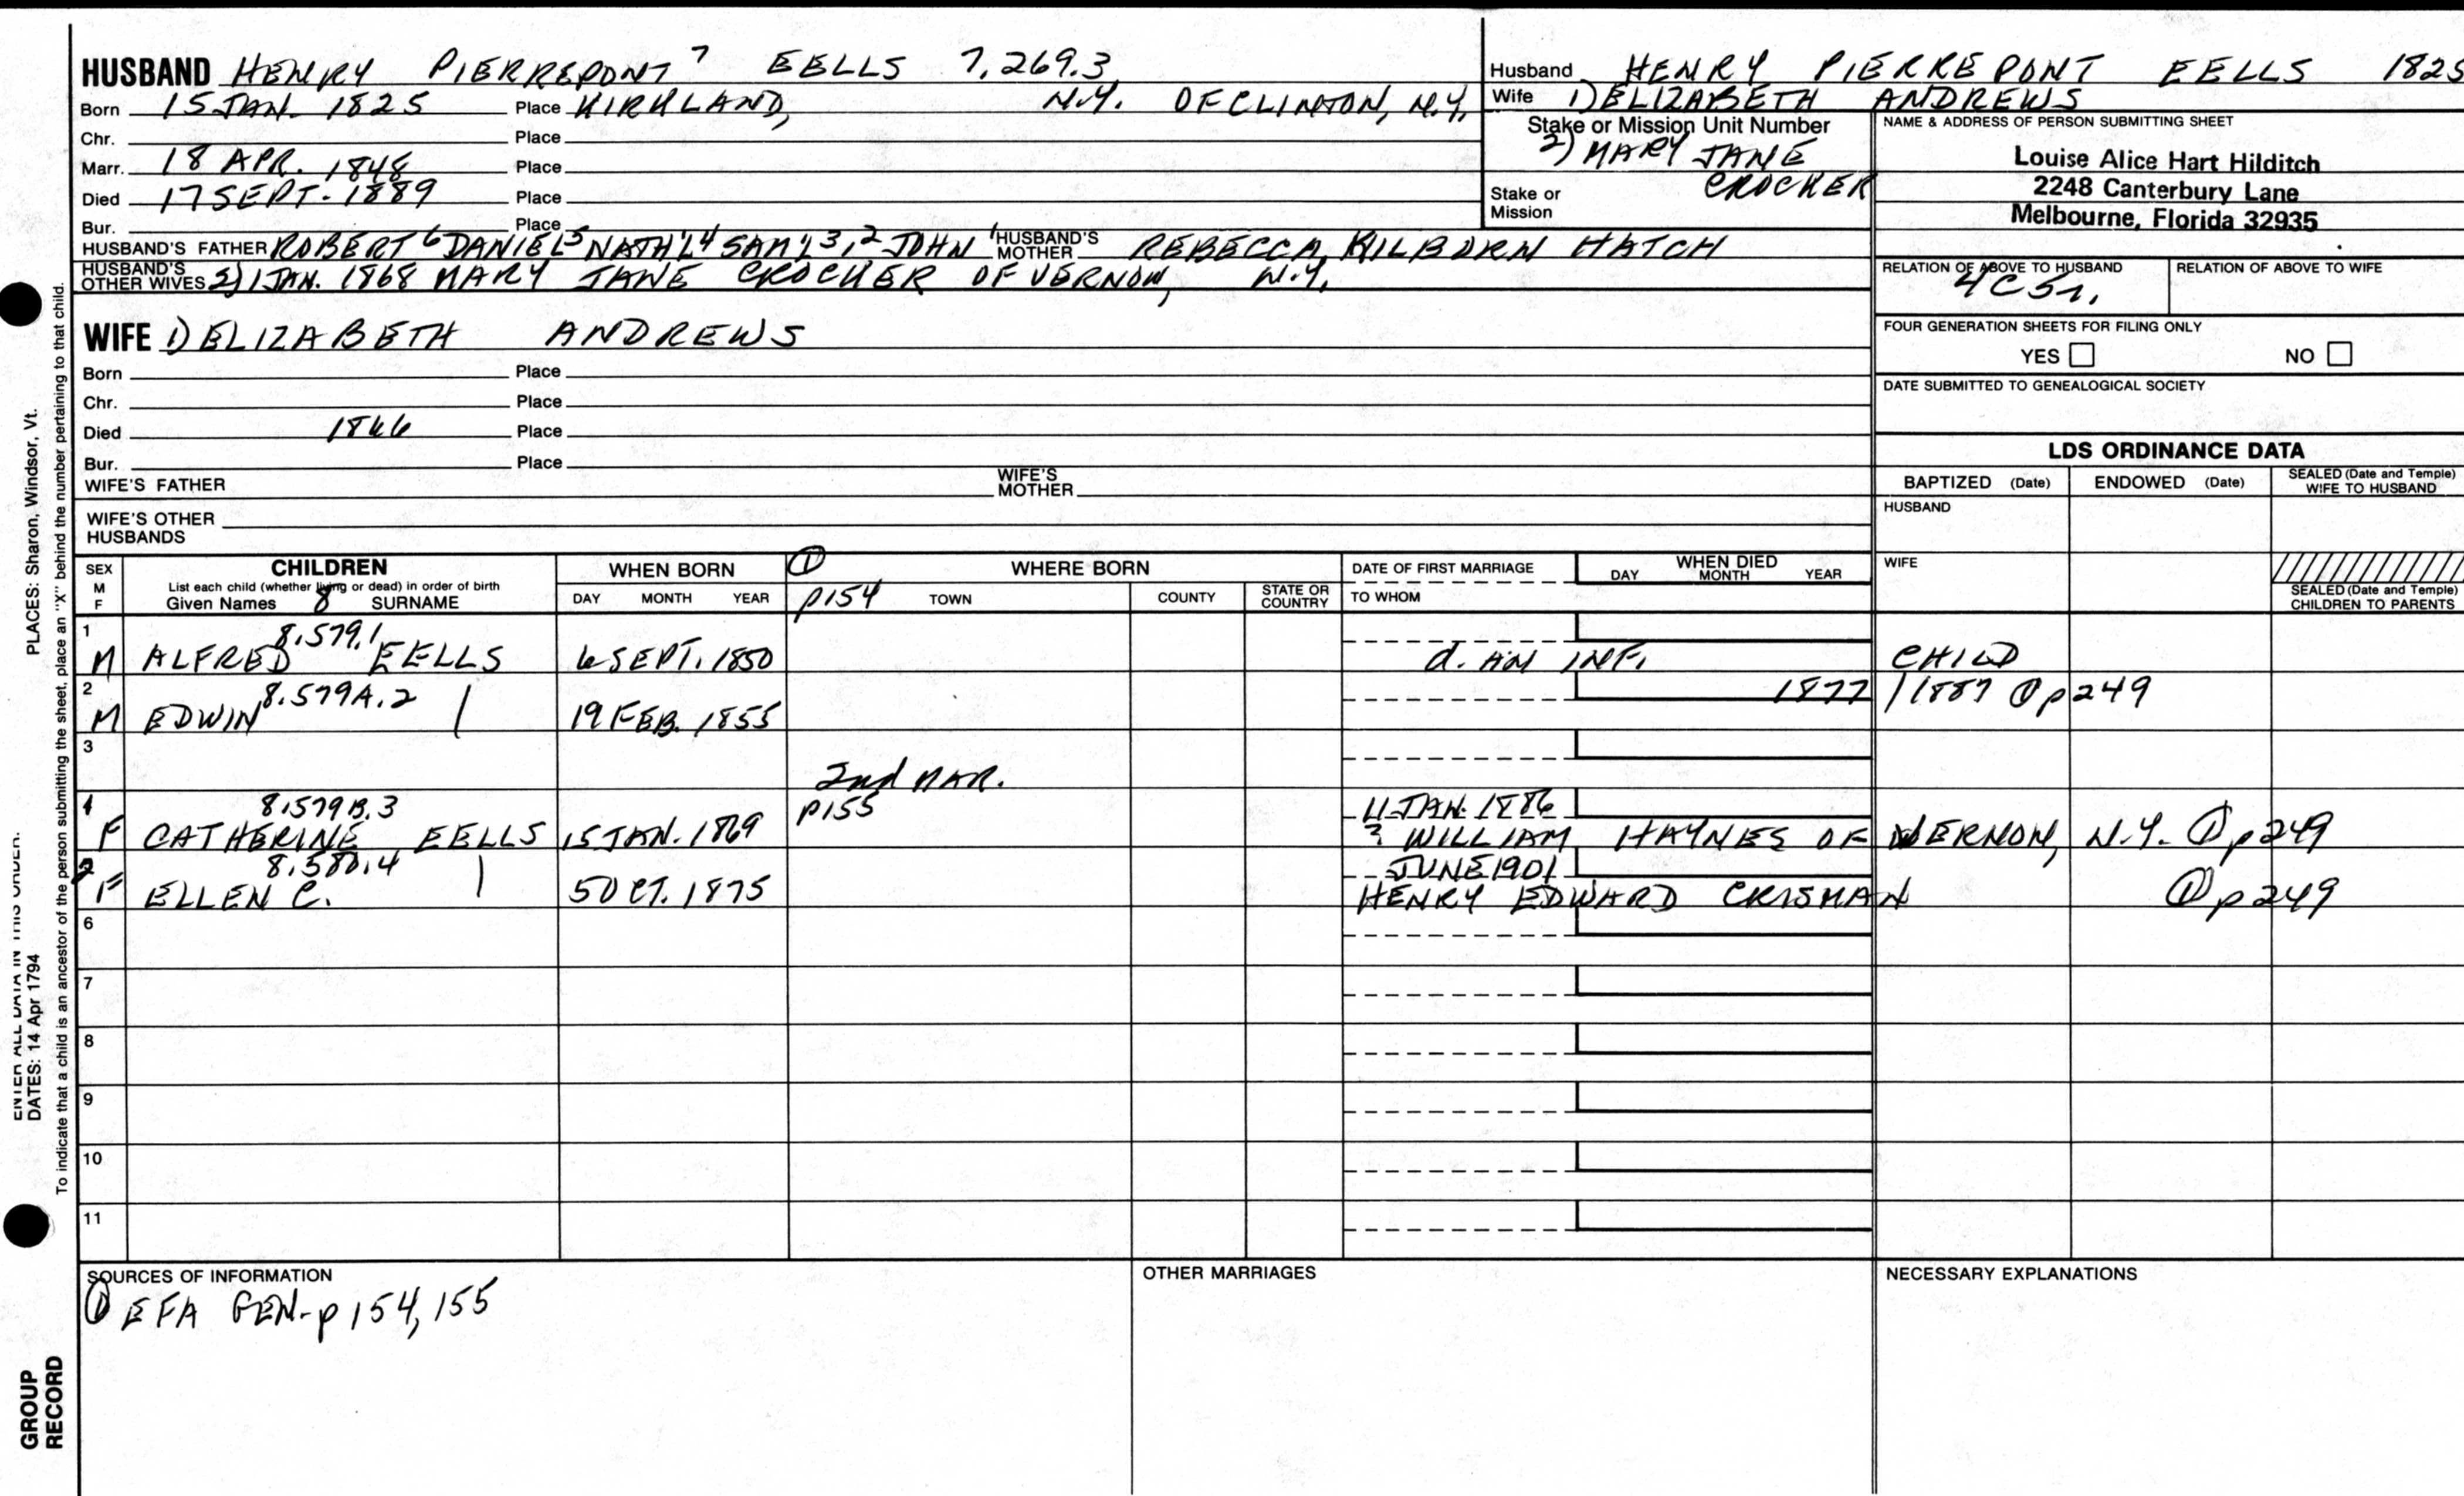 HUSBAND HENRY PIERREPONT 7 EELLS 7,269.3
Born 15 JAN. 1825 Place KIRKLAND, N.Y. OF CLINTON, N.Y.
Chr. Place
Marr. 18 APR. 1848 Place
Died 17 SEPT. 1889 Place
Bur. Place
HUSBAND'S FATHER ROBERT 6 DANIEL 5 NATH'L 4 SAM'L 3,2 JOHN 1 HUSBAND'S MOTHER REBECCA KILBORN HATCH
HUSBAND'S OTHER WIVES 2) 1 JAN. 1868 MARY JANE CROCKER OF VERNON, N.Y.
Husband HENRY PIERREPONT EELLS 1825
Wife 1) ELIZABETH ANDREWS
Stake or Mission Unit Number
2) MARY JANE
CROCKER
Stake or Mission
NAME & ADDRESS OF PERSON SUBMITTING SHEET
Louise Alice Hart Hilditch
2248 Canterbury Lane
Melbourne, Florida 32935
RELATION OF ABOVE TO HUSBAND RELATION OF ABOVE TO WIFE
4C5r.
FOUR GENERATION SHEETS FOR FILING ONLY
YES NO
DATE SUBMITTED TO GENEALOGICAL SOCIETY
WIFE 1) ELIZABETH ANDREWS
Born Place
Chr. Place
Died 1866 Place
Bur. Place
WIFE'S FATHER WIFE'S MOTHER
WIFE'S OTHER HUSBANDS
LDS ORDINANCE DATA
BAPTIZED (Date) ENDOWED (Date) SEALED (Date and Temple) WIFE TO HUSBAND
HUSBAND
WIFE
SEALED (Date and Temple) CHILDREN TO PARENTS
SEX M F
CHILDREN
List each child (whether living or dead) in order of birth
Given Names 8 SURNAME
WHEN BORN
DAY MONTH YEAR
① WHERE BORN
p154 TOWN COUNTY STATE OR COUNTRY
DATE OF FIRST MARRIAGE
TO WHOM
WHEN DIED
DAY MONTH YEAR
1 8,579.1
M ALFRED EELLS 6 SEPT. 1850 d. AN INF. CHILD
2 8.579A.2 1877 / 1887 ① p249
M EDWIN | 19 FEB. 1855
3
2nd MAR.
4 8,579B.3 p155 11 JAN. 1886
F CATHERINE EELLS 15 JAN. 1869 ? WILLIAM HAYNES OF VERNON, N.Y. ① p249
8,580.4 JUNE 1901
F ELLEN C. | 5 OCT. 1875 HENRY EDWARD CRISMAN ① p249
6
7
8
9
10
11
SOURCES OF INFORMATION
① EFA GEN-p154,155
OTHER MARRIAGES
NECESSARY EXPLANATIONS
PLACES: Sharon, Windsor, Vt.
ENTER ALL DATA IN THIS ORDER:
DATES: 14 Apr 1794
To indicate that a child is an ancestor of the person submitting the sheet, place an "X" behind the number pertaining to that child.
GROUP
RECORD